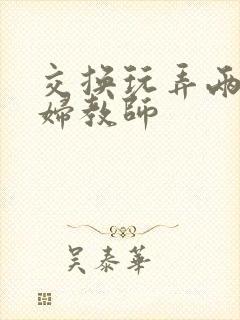 交换玩弄两
婦教師
吴泰華